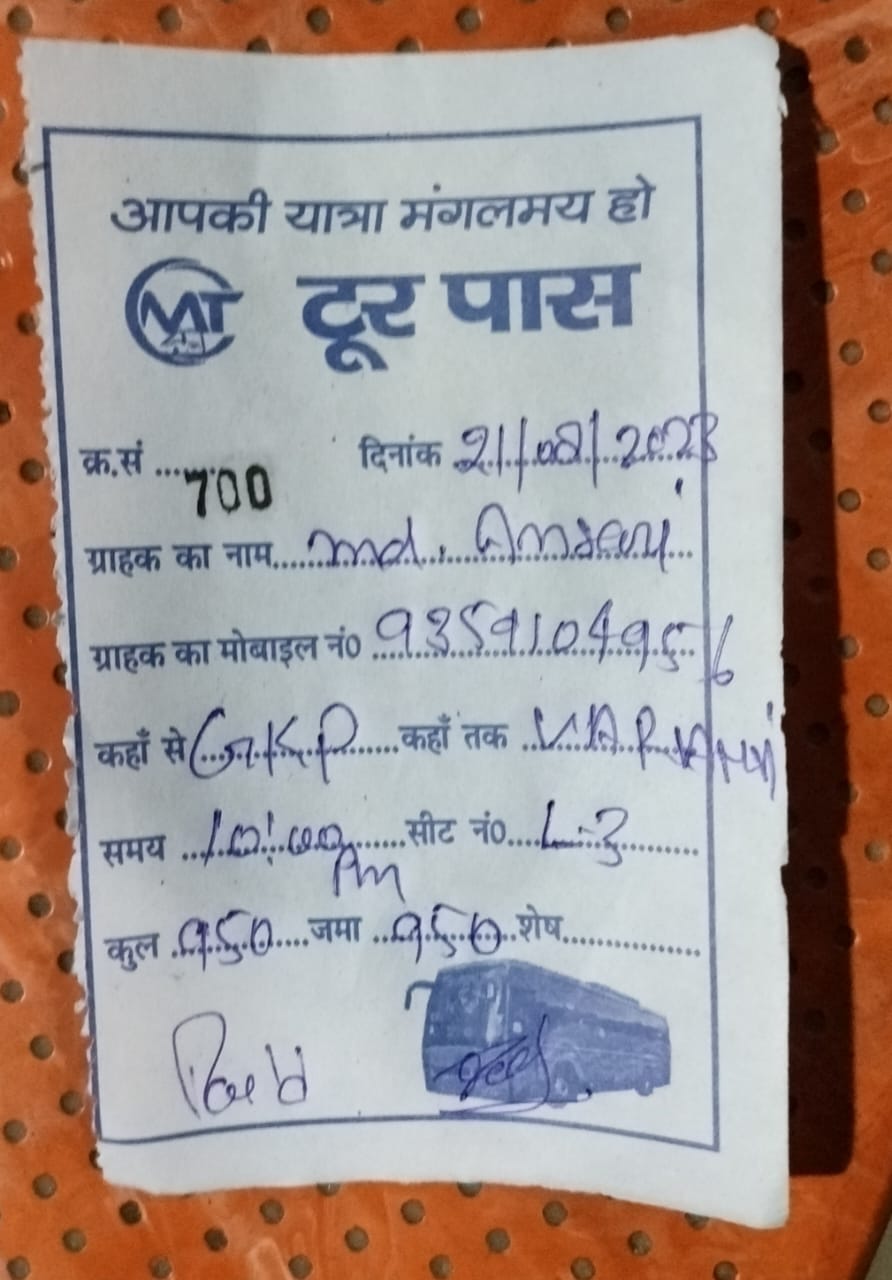 आपकी यात्रा मंगलमय हो
MT टूर पास
क्र.सं ......700 दिनांक 21/08/2023
ग्राहक का नाम...md. Ansari
ग्राहक का मोबाइल नं० 9359104956
कहाँ से GKP कहाँ तक
समय 10:00 Pm सीट नं० L-3
कुल 950 जमा 950 शेष..............
Paid